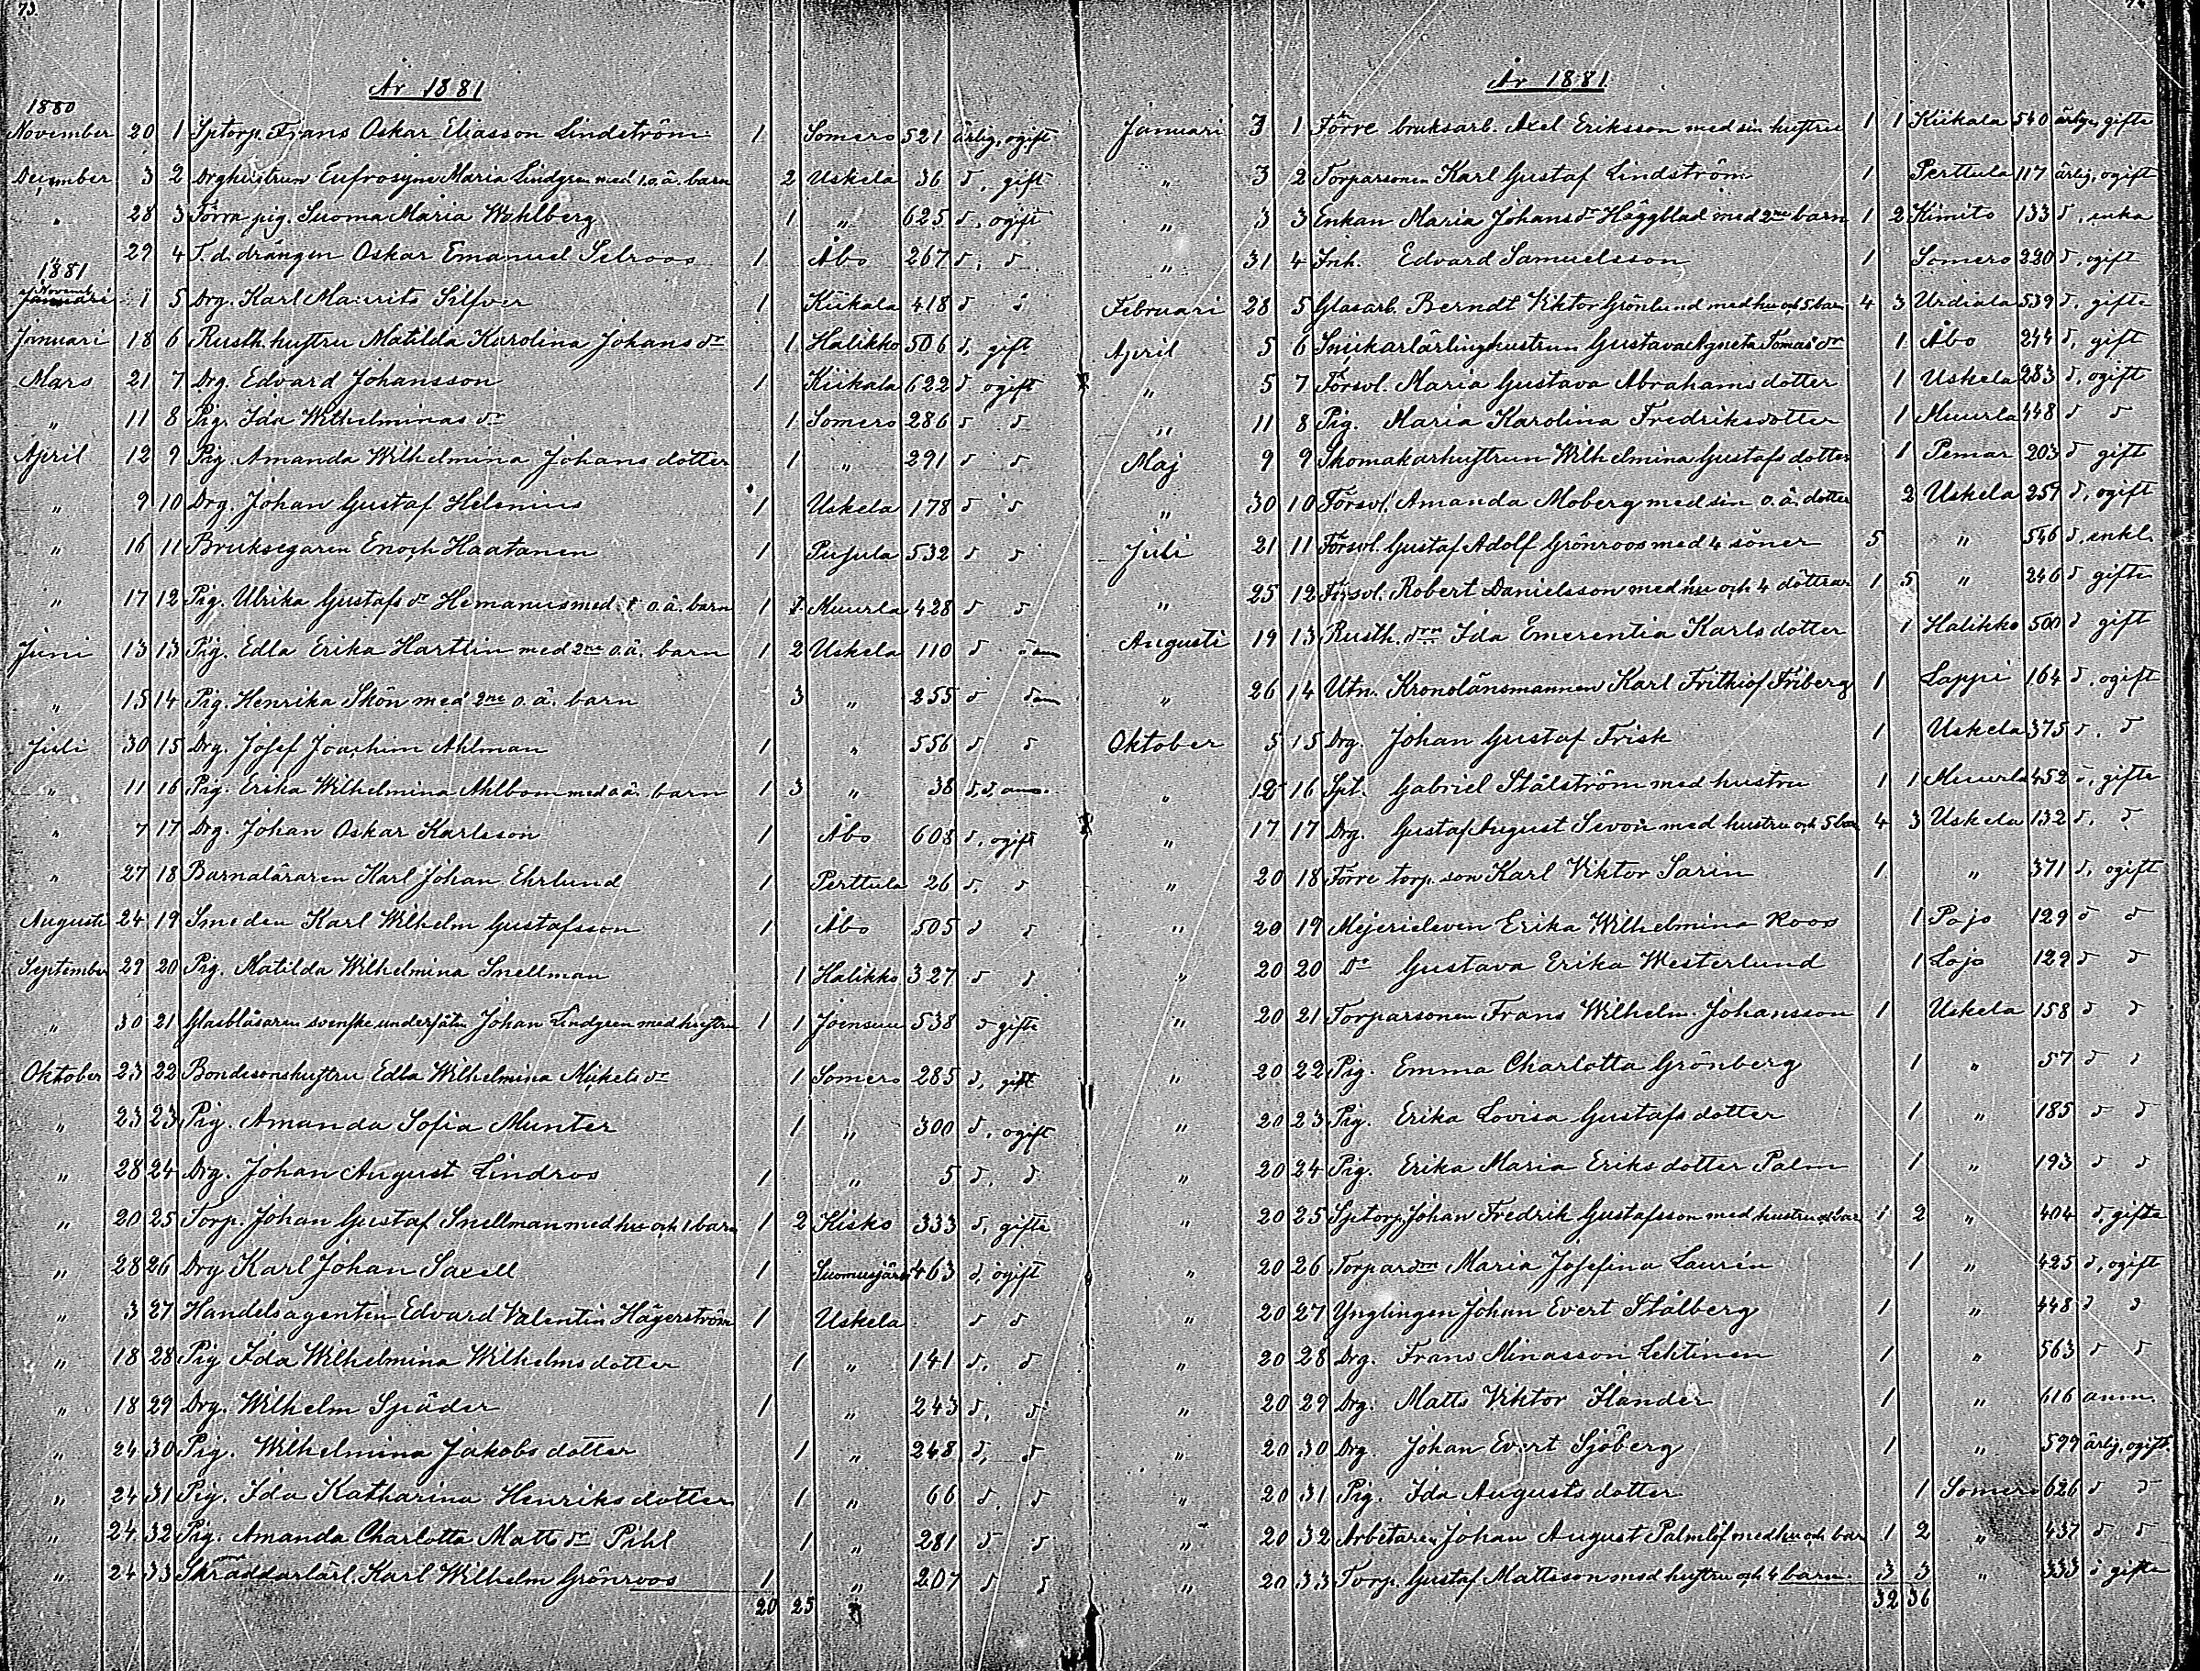 73.
År 1881
1880
November 20 1 Sptorp. Frans Oskar Eliasson Lindström 1 Somero 521 ärlig, ogift
December 3 2 Drghustrun Eufrosyne Maria Lindgren med 1 o.ä. barn 2 Uskela 36 d, gift
" 28 3 Förra pig. Suoma Maria Wahlberg 1 " 625 d, ogift
" 29 4 F.d. drängen Oskar Emanuel Selroos 1 Åbo 267 d, d
1881
Januari 1 5 Drg. Karl Maurits Silfver 1 Kiikala 418 d d
Januari 18 6 Rusth. hustru Matilda Karolina Johans dr 1 Halikko 506 d, gift
Mars 21 7 Drg. Edvard Johansson 1 Kiikala 622 d ogift
" 11 8 Pig. Ida Wilhelminas dr 1 Somero 286 d d
April 12 9 Pig. Amanda Wilhelmina Johans dotter 1 " 291 d d
" 9 10 Drg. Johan Gustaf Helenius 1 Uskela 178 d d
" 16 11 Bruksegaren Enoch Haatanen 1 Pujula 532 d d
" 17 12 Pig. Ulrika Gustafs dr Hemanus med 1 o.ä. barn 1 1 Muurla 428 d d
Juni 13 13 Pig. Edla Erika Hartlin med 2ne o.ä. barn 1 2 Uskela 110 d
" 15 14 Pig. Henrika Skön med 2ne o.ä. barn 3 " 255 d
Juli 30 15 Drg. Josef Joachim Ahlman 1 " 556 d d
" 11 16 Pig. Erika Wilhelmina Ahlbom med o.ä. barn 1 3 " 38 d,
" 7 17 Drg. Johan Oskar Karlsson 1 Åbo 608 d, ogift
" 27 18 Barnaläraren Karl Johan Ehrlund 1 Perttula 26 d, d
Augusti 24 19 Smeden Karl Wilhelm Gustafsson 1 Åbo 505 d d
September 29 20 Pig. Matilda Wilhelmina Snellman 1 Halikko 327 d d
" 30 21 Glasblåsaren svenske undersåten Johan Lindgren med hustru 1 1 Joensuu 538 d gifte
Oktober 23 22 Bondesonshustru Edla Wilhelmina Mikels dr 1 Somero 285 d, gift
" 23 23 Pig. Amanda Sofia Munter 1 " 300 d, ogift
" 28 24 Drg. Johan August Lindros 1 " 5 d, d
" 20 25 Torp. Johan Gustaf Snellman med hu och 1 barn 1 2 Kisko 333 d, gifte
" 28 26 Drg Karl Johan Saxell 1 Suomusjärvi 463 d, ogift
" 3 27 Handelsagenten Edvard Valentin Hägerström 1 Uskela d d
" 18 28 Pig Ida Wilhelmina Wilhelms dotter 1 " 141 d, d
" 18 29 Drg. Wilhelm Späder 1 " 243 d, d
" 24 30 Pig. Wilhelmina Jakobs dotter 1 " 248 d, d
" 24 31 Pig. Ida Katharina Henriks dotter 1 " 66 d, d
" 24 32 Pig. Amanda Charlotta Matts dr Pihl 1 " 281 d d
" 24 33 Skräddarlärl. Karl Wilhelm Grönroos 1 " 207 d d
20 25
År 1881
Januari 3 1 Förre bruksarb. Axel Eriksson med sin hustru 1 1 Kiikala 540 ärlige, gifte
" 3 2 Torparsonen Karl Gustaf Lindström 1 Perttula 117 ärlig, ogift
" 3 3 Enkan Maria Johans dr Häggblad med 2ne barn 1 2 Kimito 133 d, enka
" 31 4 Inh. Edvard Samuelsson 1 Somero 220 d, ogift
Februari 28 5 Glasarb. Berndt Viktor Grönlund med hu och 5 barn 4 3 Urdiala 539 d, gifte
April 5 6 Snickarlärlinghustrun Gustava Agneta Tomas dr 1 Åbo 244 d, gift
" 5 7 Försvl. Maria Gustava Abrahams dotter 1 Uskela 283 d, ogift
" 11 8 Pig. Maria Karolina Fredriksdotter 1 Muurla 448 d d
Maj 9 9 Skomakarhustrun Wilhelmina Gustafs dotter 1 Pemar 203 d gift
" 30 10 Försvl. Amanda Moberg med sin o.ä. dotter 2 Uskela 257 d, ogift
Juli 21 11 Försvl. Gustaf Adolf Grönroos med 4 söner 5 " 546 d, enkl.
" 25 12 Försvl. Robert Danielsson med hu och 4 döttrar 1 5 " 246 d gifte
Augusti 19 13 Rusth. drn Ida Emerentia Karls dotter 1 Halikko 500 d gift
" 26 14 Utn. Kronolänsmannen Karl Frithiof Friberg 1 Lappi 164 d, ogift
Oktober 5 15 Drg. Johan Gustaf Frisk 1 Uskela 375 d, d
" 12 16 Spt. Gabriel Stålström med hustru 1 1 Muurla 452 d, gifte
" 17 17 Drg. Gustaf August Sevón med hustru och 5 bar 4 3 Uskela 132 d, d
" 20 18 Förre torp. son Karl Viktor Sarin 1 " 371 d, ogift
" 20 19 Mejerieleven Erika Wilhelmina Roos 1 Pojo 129 d d
" 20 20 Do Gustava Erika Westerlund 1 Lojo 129 d d
" 20 21 Torparsonen Frans Wilhelm Johansson 1 Uskela 158 d d
" 20 22 Pig. Emma Charlotta Grönberg 1 " 57 d d
" 20 23 Pig. Erika Lovisa Gustafs dotter 1 " 185 d d
" 20 24 Pig. Erika Maria Eriks dotter Palm 1 " 193 d d
" 20 25 Sptorp. Johan Fredrik Gustafsson med hustru och bar 1 2 " 404 d, gifte
" 20 26 Torpardrn Maria Josefina Laurén 1 " 425 d, ogift
" 20 27 Ynglingen Johan Evert Stålberg 1 " 448 d d
" 20 28 Drg. Frans Minasson Lehtinen 1 " 563 d d
" 20 29 Drg. Matts Viktor Flander 1 " 616 anm.
" 20 30 Drg. Johan Evert Sjöberg 1 " 599 ärlig, ogift
" 20 31 Pig. Ida Augusts dotter 1 Somero 626 d d
" 20 32 Arbetaren Johan August Palmlöf med hu och bar 1 2 " 437 d d
" 20 33 Torp. Gustaf Mattsson med hustru och 4 barn 3 3 " 333 d gifte
32 36